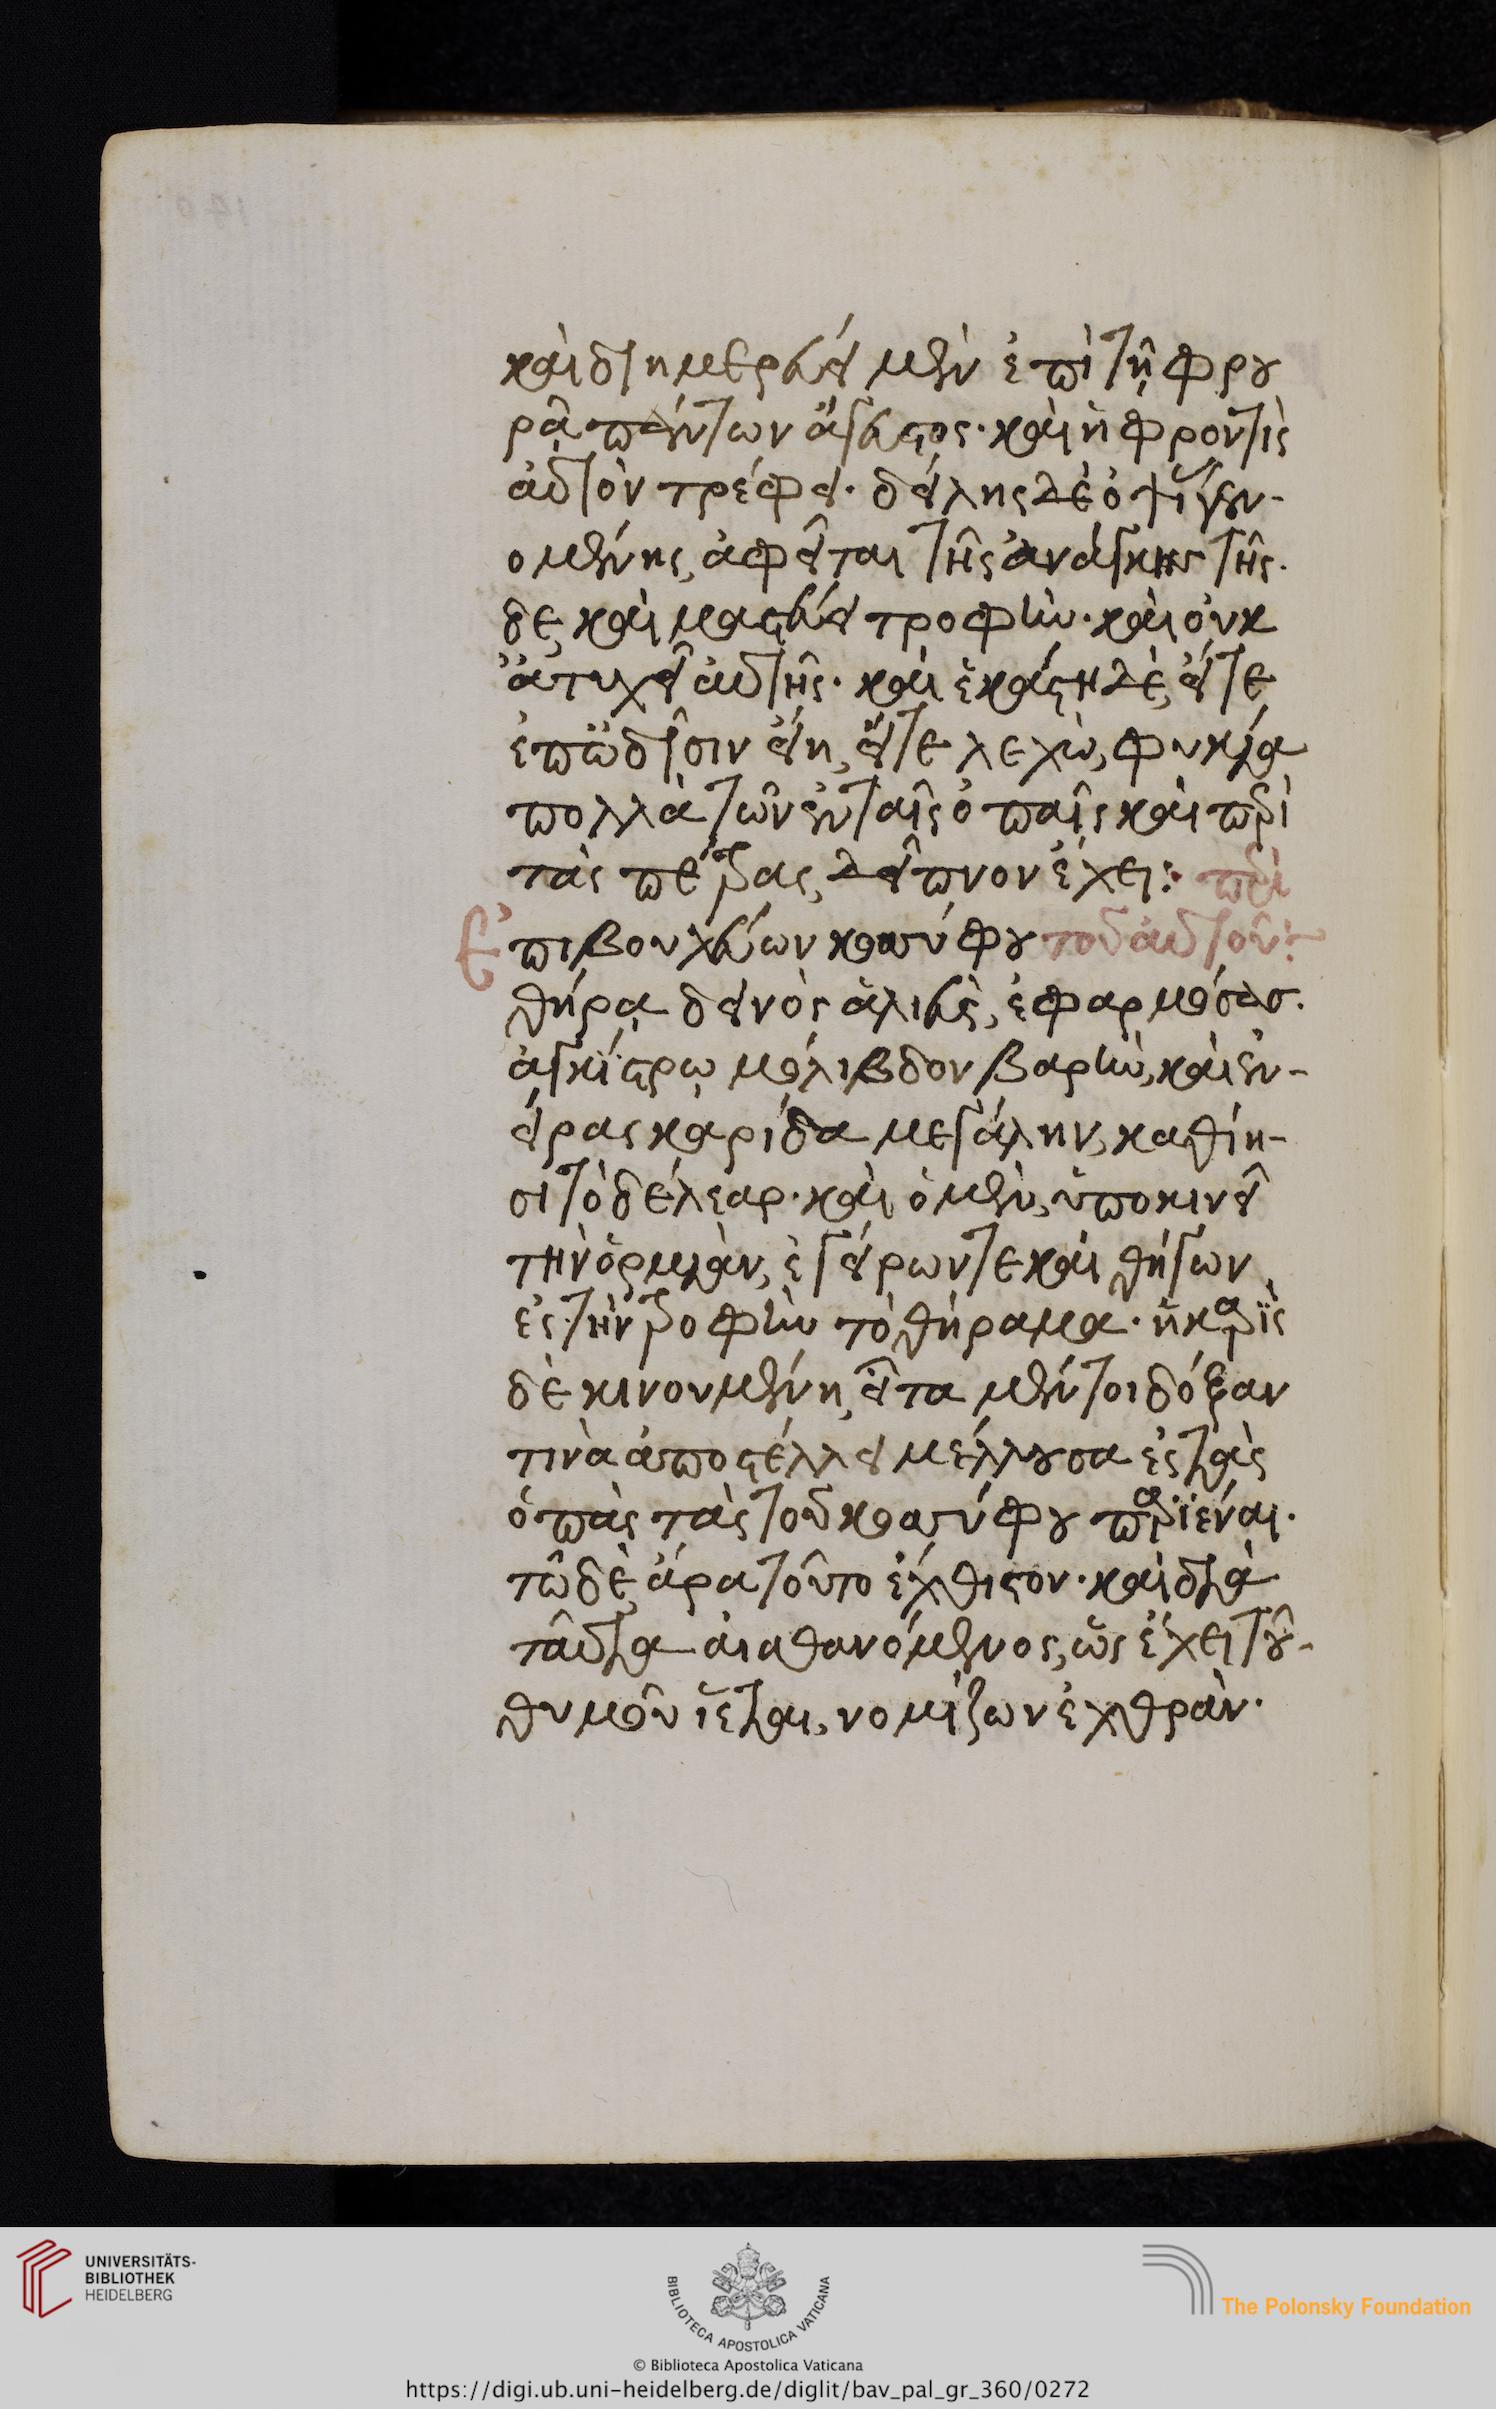 καὶ διημερεύει μὲν ἐπὶ τῇ φρου
ρᾷ πάντων ἄγευστος· καὶ ἡ φροντὶς
αὐτὸν τρέφει· δείλης δὲ ὀψίας γεν-
ομένης, ἀφεῖται τῆς ἀνάγκης τῆς
δε, καὶ μαστεύει τροφὴν· καὶ οὐκ
ἀτυχεῖ αὐτῆς· καὶ ἑκάστη δὲ, εἴτε
ἐπ' ὠδῖσιν εἴη, εἴτε λεχὼ, φυκία
πολλὰ τῶν ἐν ταῖς ὀπαῖς καὶ περὶ
τὰς πέτρας, δεῖπνον ἔχει: περὶ
Ἐπιβουλεύων κοσσύφῳ τοῦ αὐτοῦ:
θήρᾳ δεινὸς ἁλιεὺς, ἐφαρμόσας
ἀγκίστρῳ μόλιβδον βαρὺν, καὶ ἐν-
είρας καρίδα μεγάλην, καθίη-
σι τὸ δέλεαρ· καὶ ὁ μὲν, ὑποκινεῖ
τὴν ὁρμιὰν, ἐγείρων τε καὶ θήγων
ἐς τὴν τροφὴν τὸ θήραμα· ἡ καρὶς
δὲ κινουμένη, εἶτα μέντοι δόξαν
τινὰ ἀποστέλλει μέλλουσα ἐς τὰς
ὀπὰς τὰς τοῦ κοσσύφου παριέναι·
τῷ δὲ, ἄρα τοῦτο ἔχθιστον· καὶ διὰ
ταῦτα αἰσθανόμενος, ὡς ἔχει τοῦ
θυμοῦ ἵεται, νομίζων ἐχθρὰν·
UNIVERSITÄTS-
BIBLIOTHEK
HEIDELBERG
BIBLIOTECA APOSTOLICA VATICANA
The Polonsky Foundation
© Biblioteca Apostolica Vaticana
https://digi.ub.uni-heidelberg.de/diglit/bav_pal_gr_360/0272